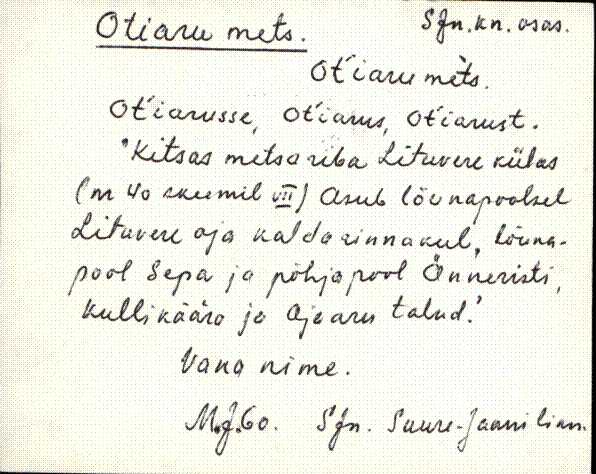 Otiaru mets. SJn. kn. osas.
Ot'iaru mèts.
Ot'iarusse, Ot'iarus, Ot'iarust.
"Kitsas metsariba Lituvere külas
(nr 40 skeemil VII) Asub lõunapoolsel
Lituvere oja kaldarinnakul, lõuna-
pool Sepa ja põhjapool Änneristi,
Kullikääro ja Ojaaru talud."
Vana nime.
M.J.60. SJn. Suure-Jaani lian.